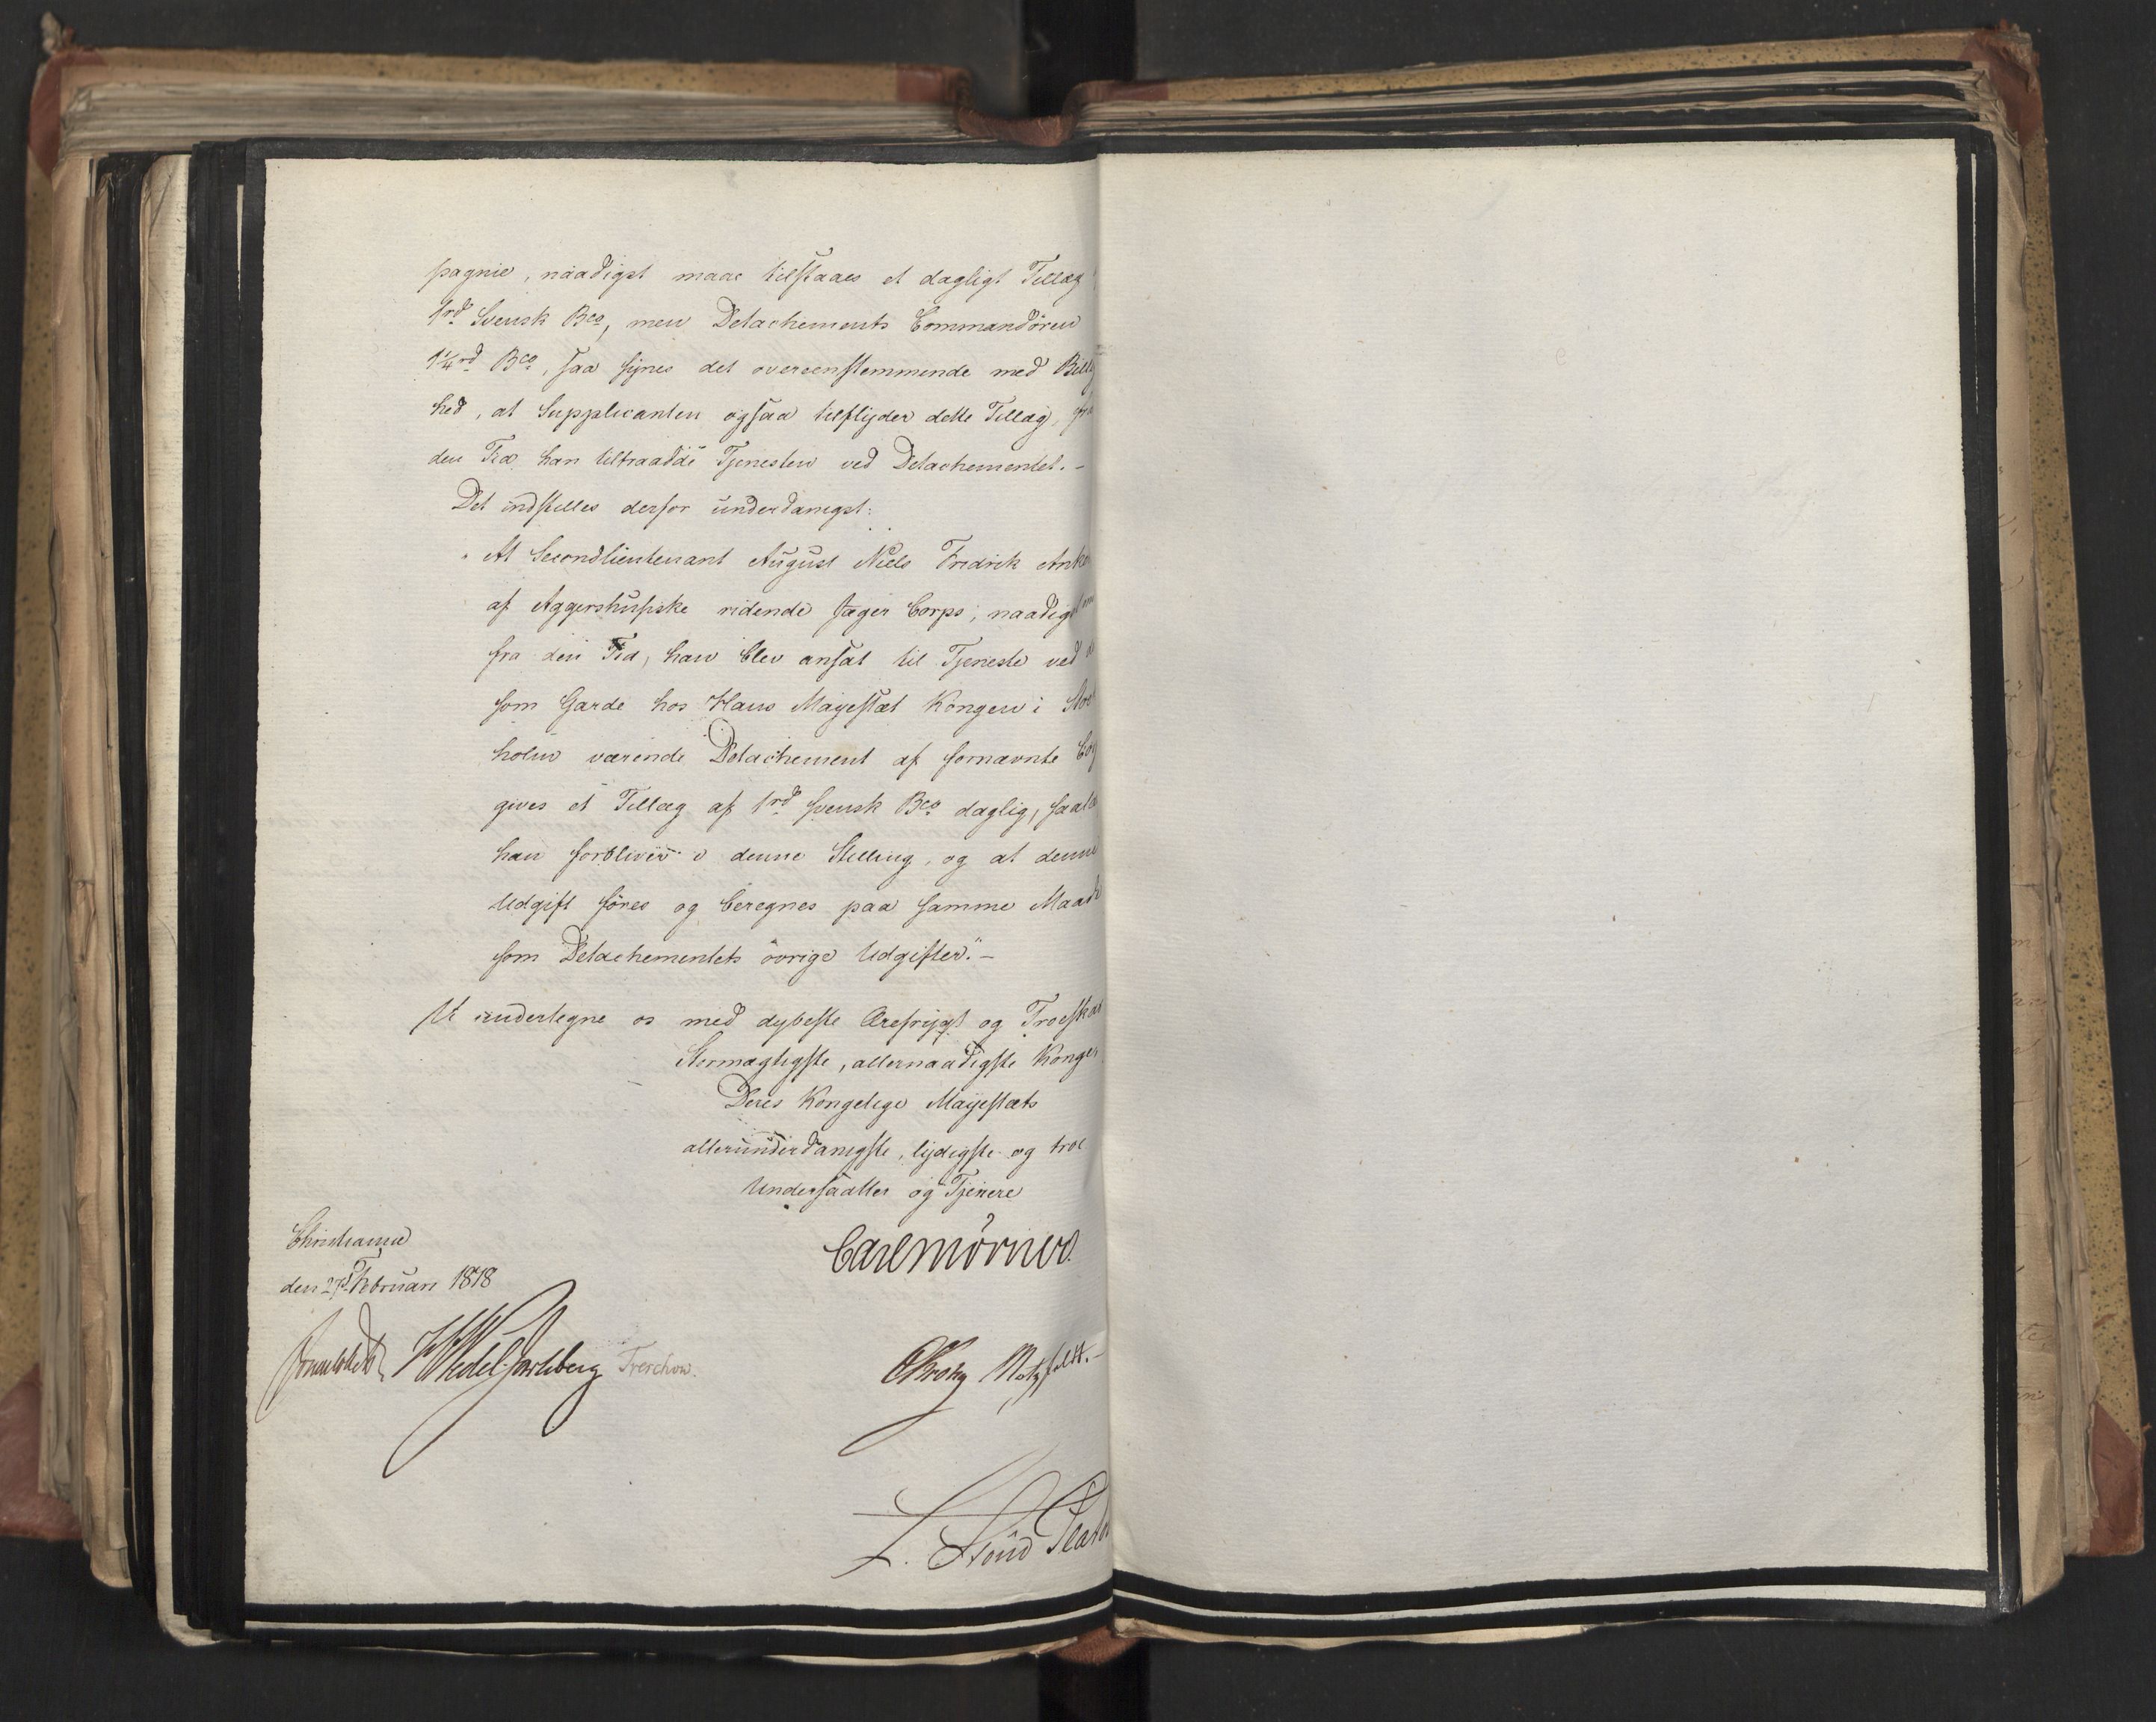 pagnie, naadigst maae tilstaaes et dagligt Tillæg
1rd Svensk Bco, men Detachements Commandören
1¼rd Bco, saa synes det overeenstemmende med Billig
hed, at Supplicanten ogsaa tilflyder dette Tillæg, fra
den Tid han tiltraadde Tjenesten ved Detachementet. –
Det indstilles derfor underdanigst:
"At Secondlieutenant August Niels Fredrik Anker
af Aggershusiske ridende Jæger Corps, naadigst maa
fra den Tid, han blev ansat til Tjeneste ved
som Garde hos Hans Majestæt Kongen i Stoc
holm værende Detachement af fornævnte
gives et Tillæg af 1rd svensk Bco daglig, saal
han forbliver i denne Stilling, og at denne
Udgift föres og beregnes paa samme Maade
som Detachementets övrige Udgifter." –
Vi undertegne os med dybeste Ærefrygt og Troeskab
Stormægtigste, allernaadigste Konge
Deres Kongelige Majestæts
allerunderdanigste, lydigste og troe
Undersaatter og Tjenere
Carl Mörner
Christiania
den 27d Februari 1818
Sommerhielm HWedel Jarlsberg Treschow.
CKrohg Motzfeldt. –
L. Stoud Platou